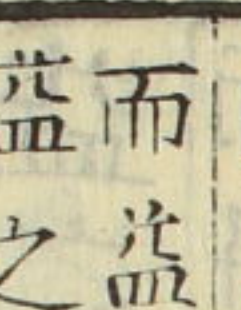 而益
益之